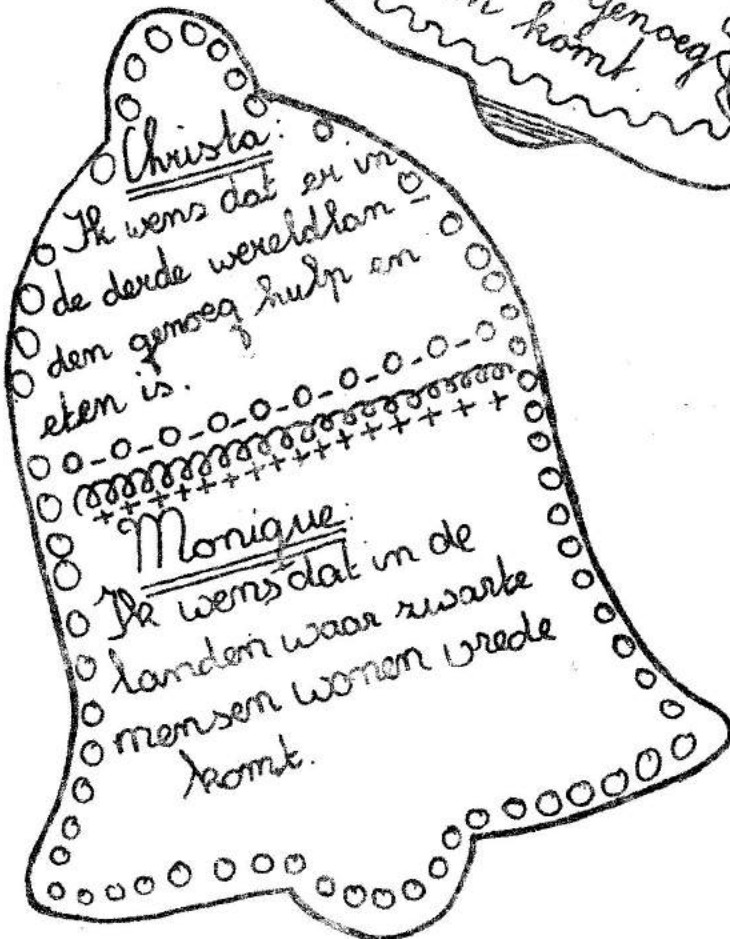 genoeg
komt.
Christa:
Ik wens dat er in
de derde wereldlan-
den genoeg hulp en
eten is.
Monique:
Ik wens dat in de
landen waar zwarte
mensen wonen vrede
komt.